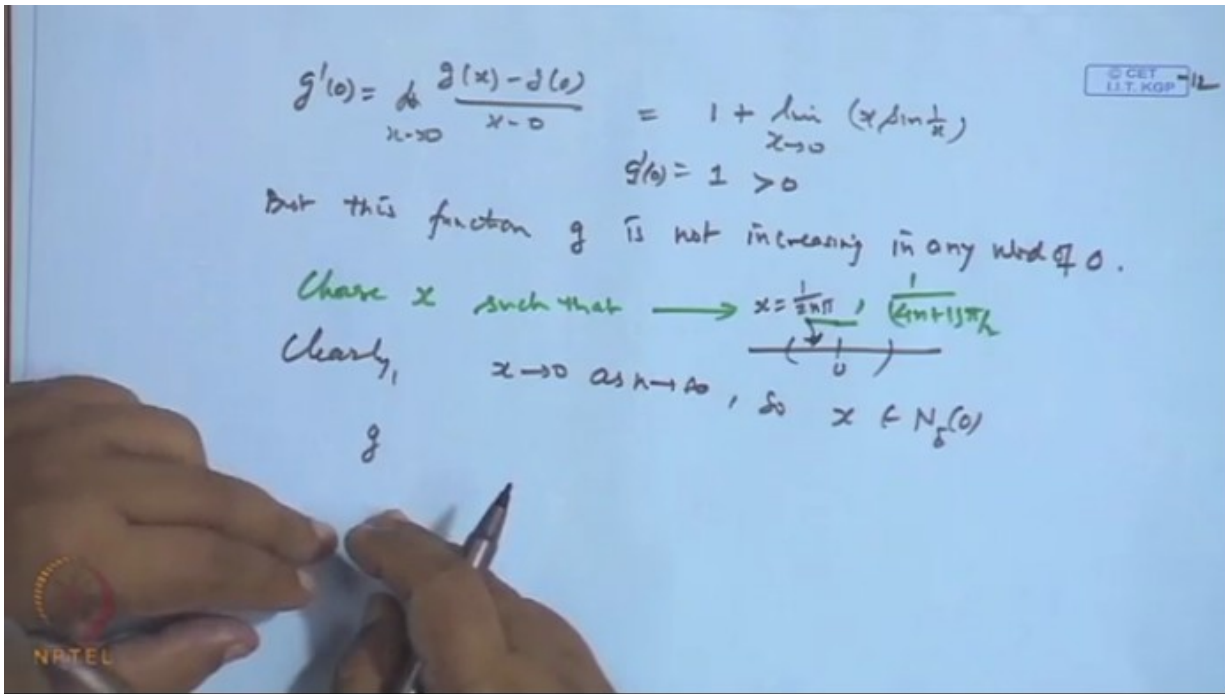 g'(0) = lim x→0 g(x) - g(0) / x - 0 = 1 + lim x→0 (x sin 1/x)
g'(0) = 1 > 0
But this function g is not increasing in any nbd of 0.
Choose x such that → x = 1/2nπ , 1/(4n+1)π/2
0
Clearly, x→0 as n→∞, so x ∈ N_δ(0)
g
© CET
I.I.T. KGP
-12
NPTEL